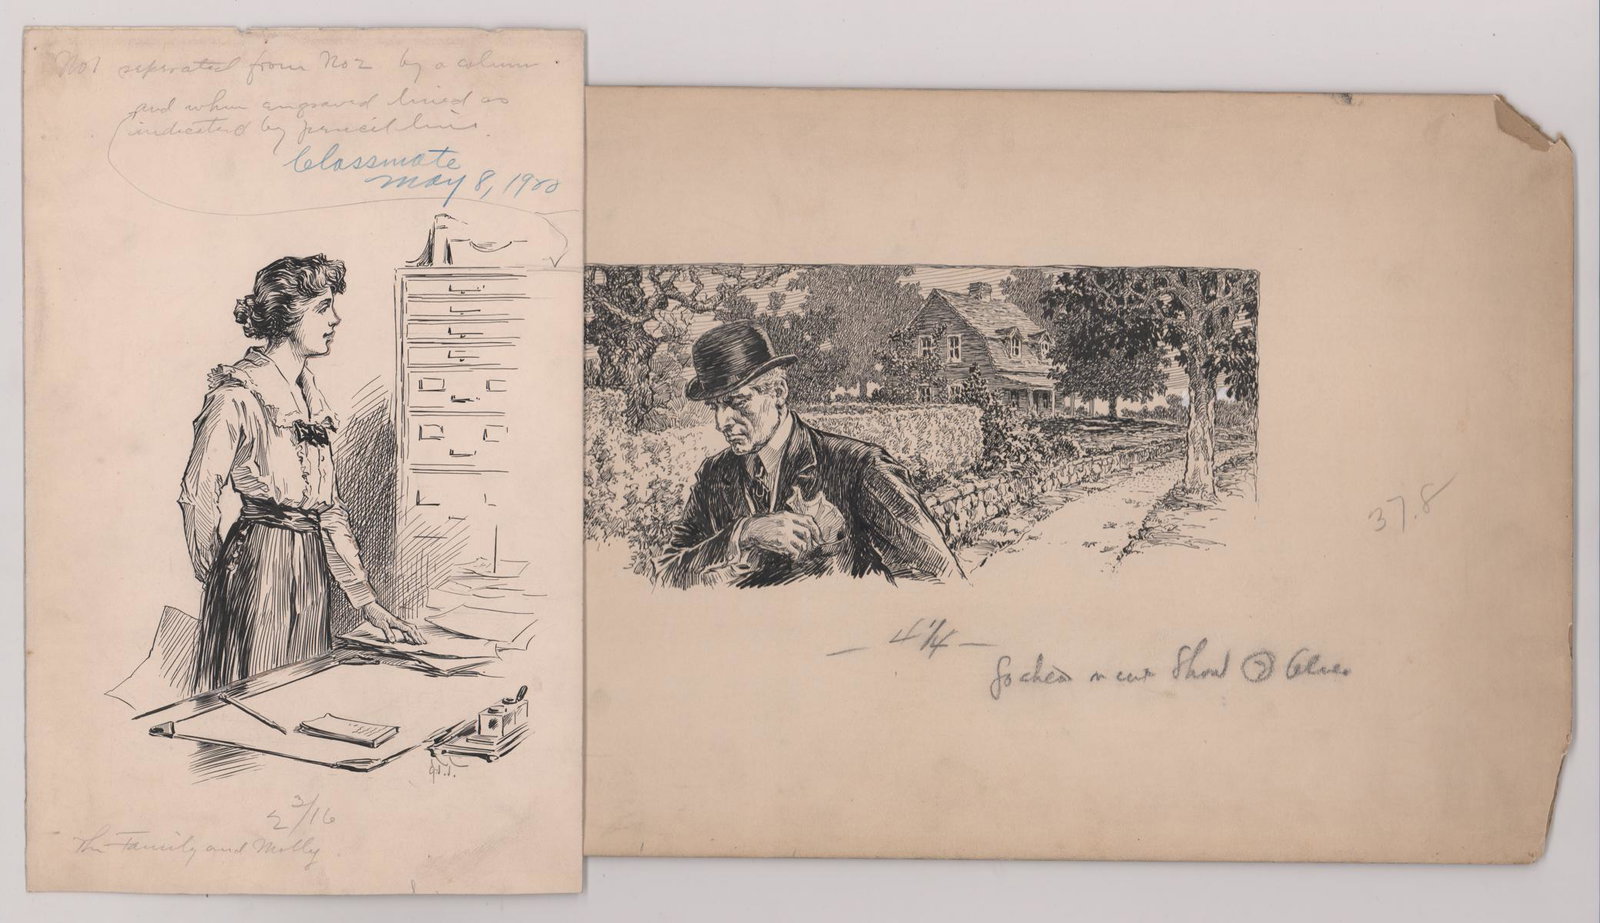 No 1 separated from No 2 by a column.
and when engraved lined as
indicated by pencil line.
Classmate
May 8, 1920
2 3/16
The Family and Molly
37.8
— 4 1/4 —